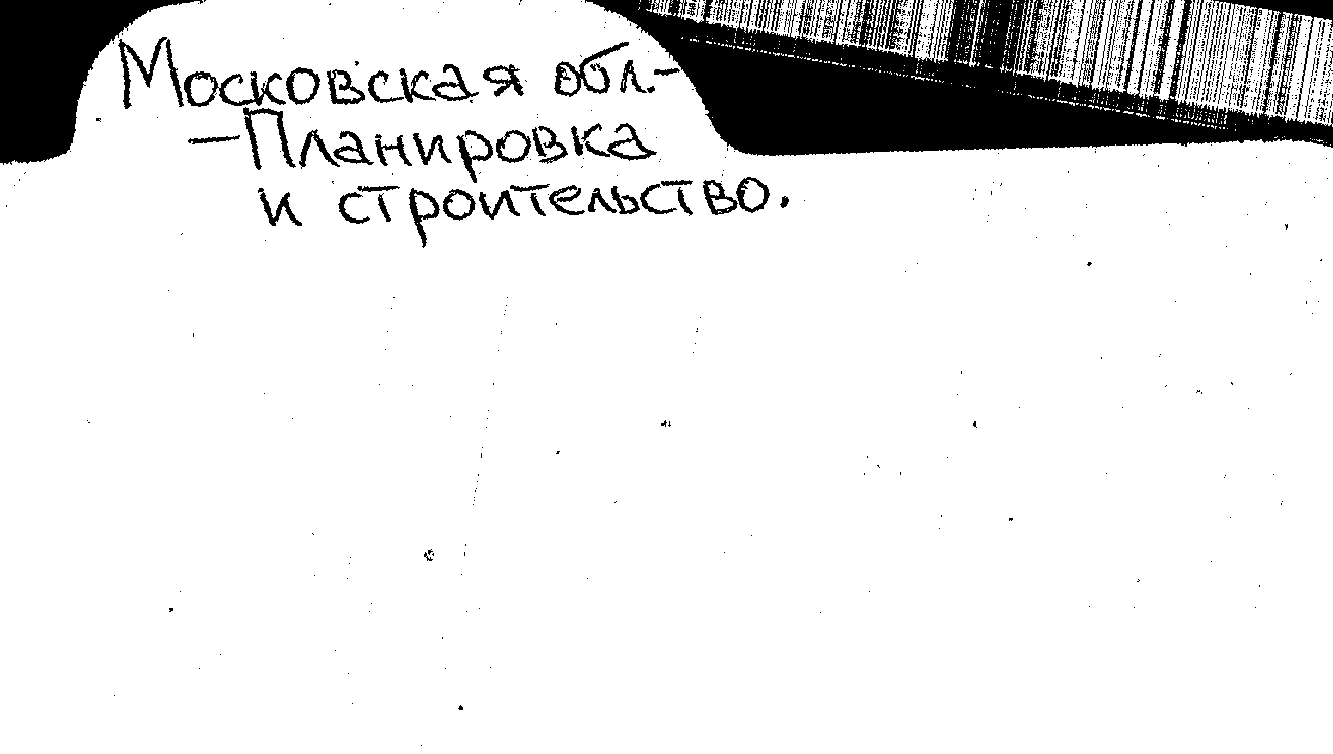 Московская обл.-
-Планировка
и строительство.